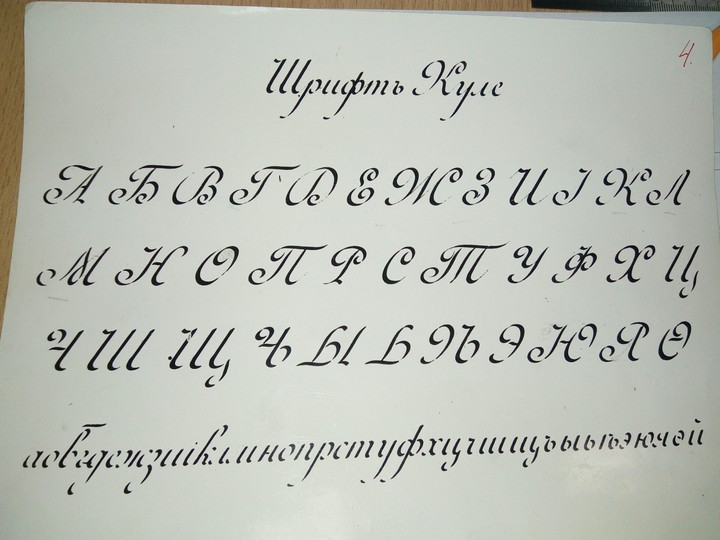 Шрифтъ Куле
4.
А Б В Г Д Е Ж З И І К Л
М Н О П Р С Т У Ф Х Ц
Ч Ш Щ Ъ Ы Ь Ѣ Э Ю Я Ѳ
абвгдежзиіклмнопрстуфхцчшщъыьѣэюяѳй